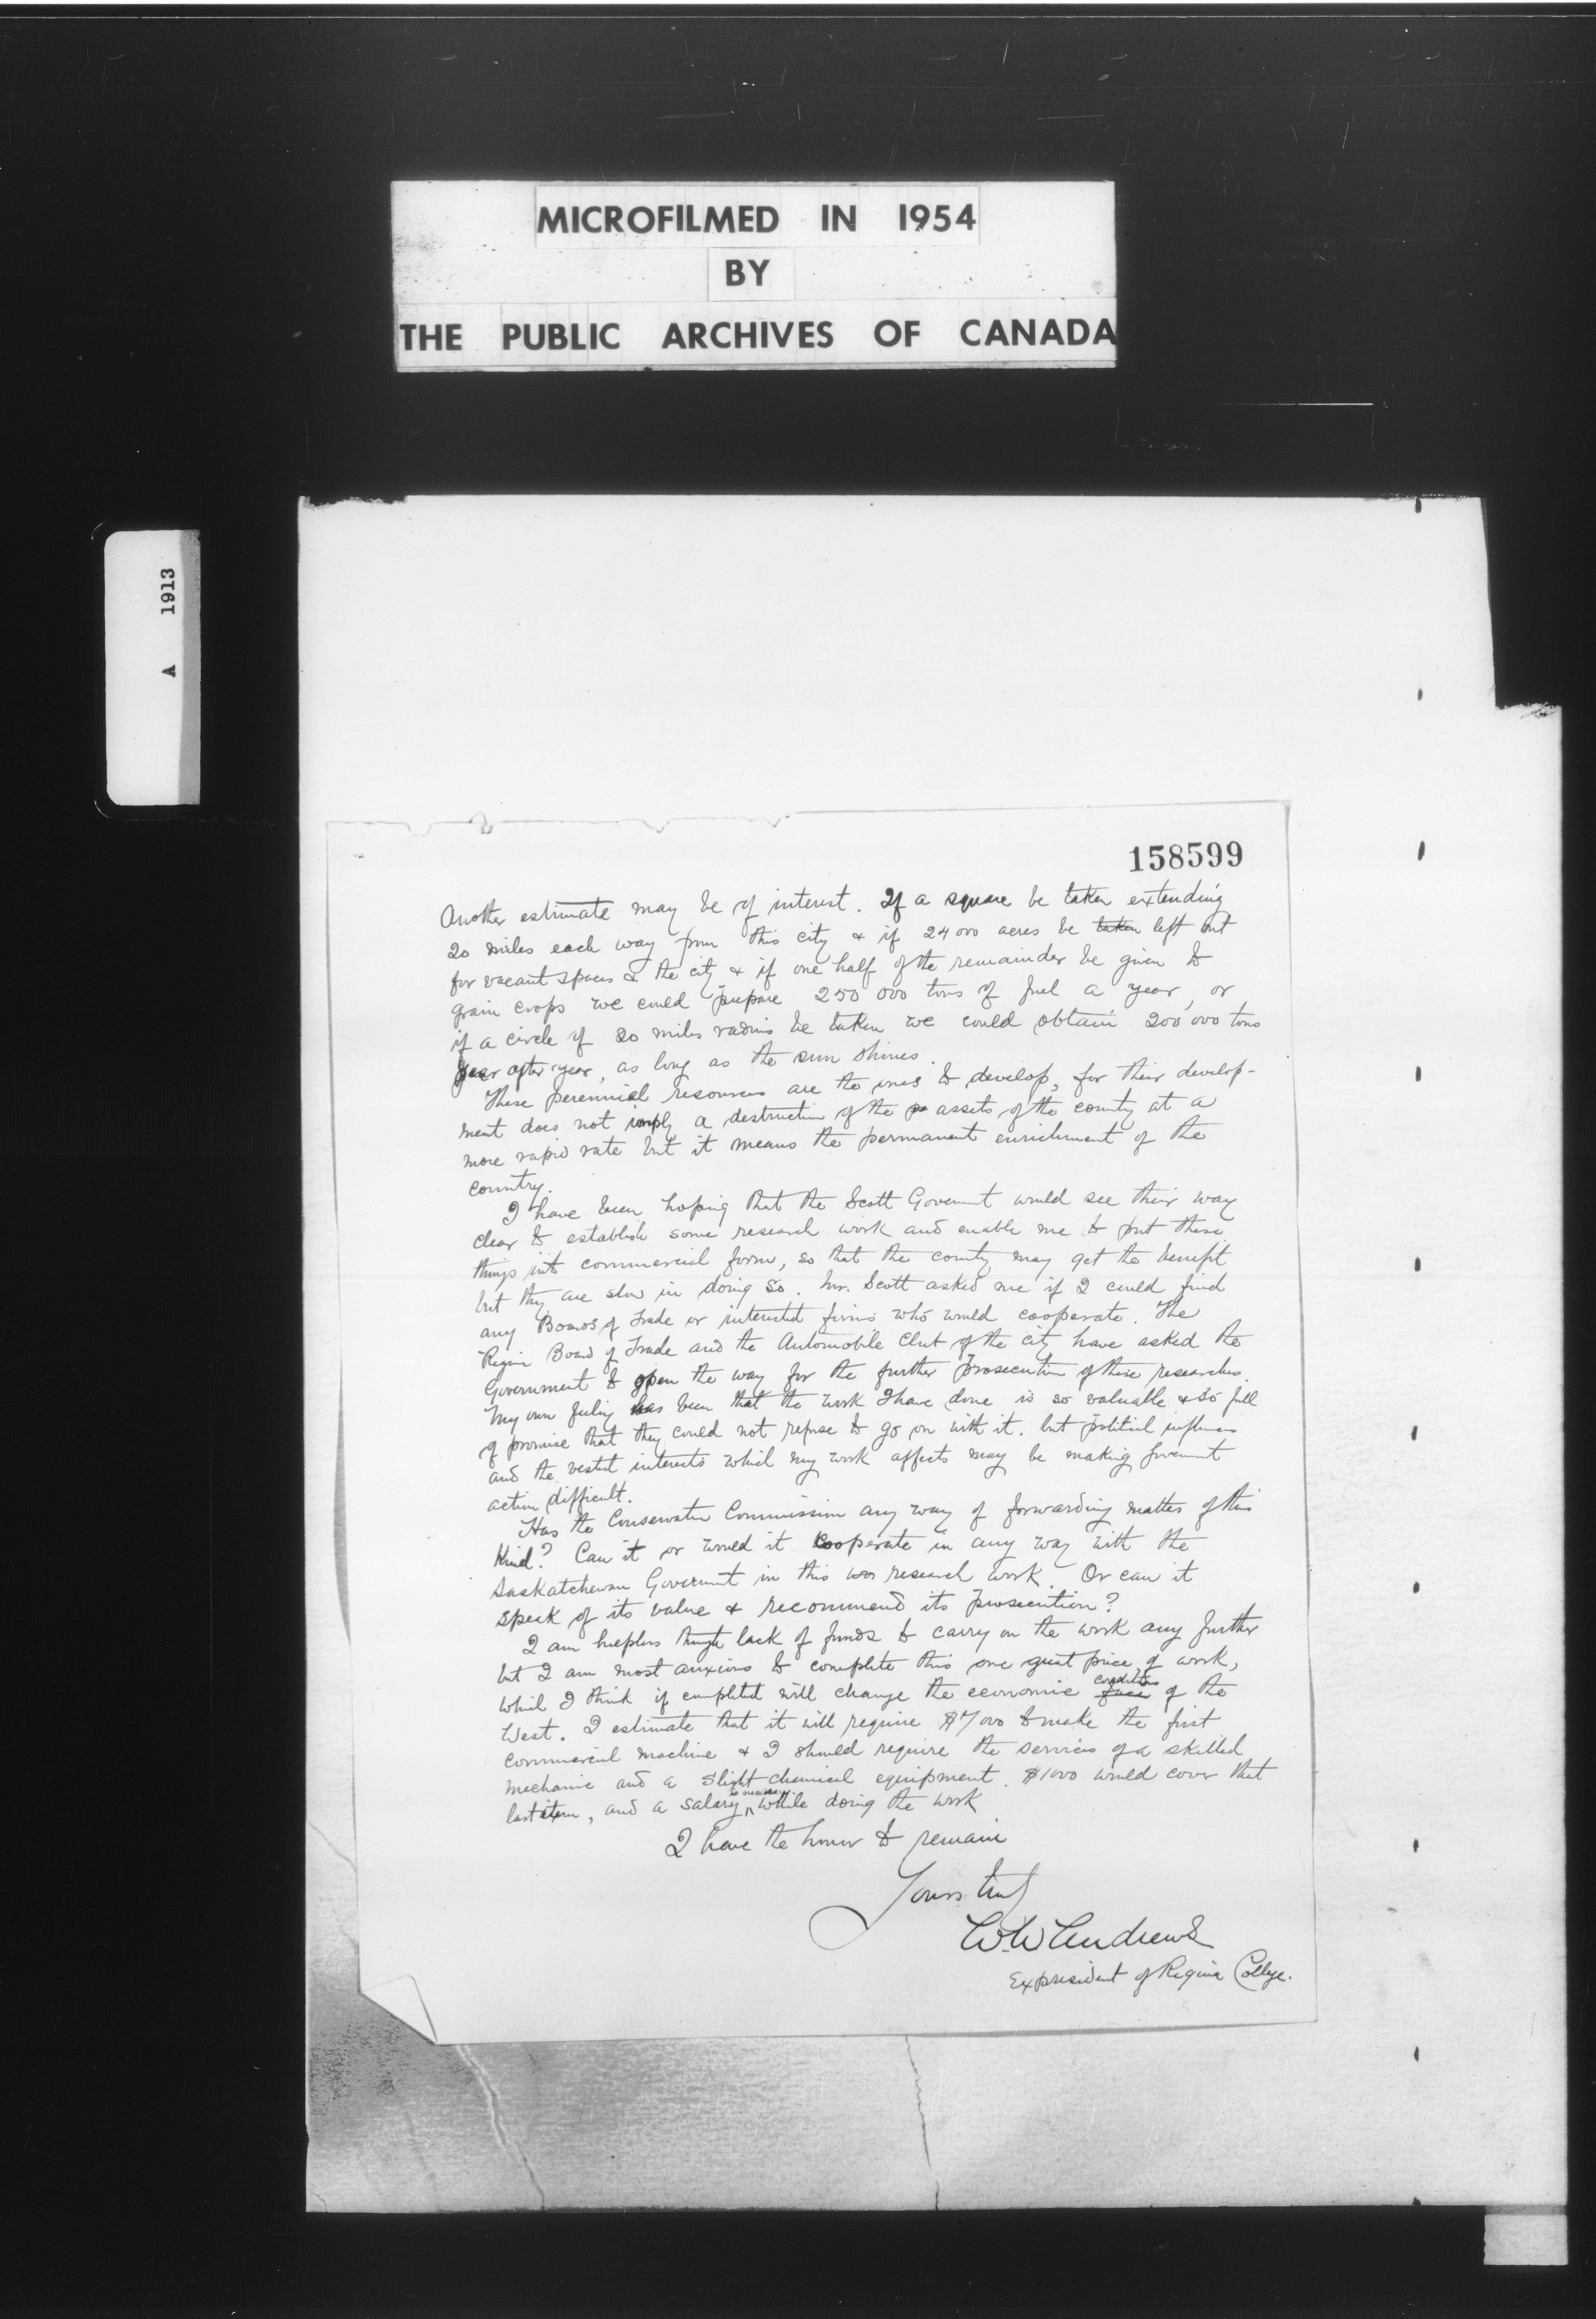 MICROFILMED IN 1954
BY
THE PUBLIC ARCHIVES OF CANADA
A 1913
158599
Another estimate may be of interest. If a square be taken extending
20 miles each way from this city & if 24000 acres be taken left out
for vacant spaces & the city & if one half of the remainder be given to
grain crops we could prepare 250 000 tons of fuel a year, or
if a circle of 20 miles radius be taken we could obtain 200 000 tons
year after year, as long as the sun shines.
These perennial resources are the ones to develop, for their develop-
ment does not imply a destruction of the assets of the country at a
more rapid rate but it means the permanent enrichment of the
country.
I have been hoping that the Scott Goverment would see their way
clear to establish some research work and enable me to put these
things into commercial form, so that the country may get the benefit
but they are slow in doing so. Mr. Scott asked me if I could find
any Boards of Trade or interested firms who would cooperate. The
Regina Board of Trade and the Automobile Club of the city have asked the
Government to open the way for the further prosecution of these researches.
My own feeling has been that the work I have done is so valuable & so full
of promise that they could not refuse to go on with it. but political influences
and the vested interests which my work affects may be making Goverment
action difficult.
Has the Conservation Commission any way of forwarding matters of this
kind? Can it or would it cooperate in any way with the
Saskatchewan Goverment in this research work. Or can it
speak of its value & recommend its prosecution?
I am helpless through lack of funds to carry on the work any further
but I am most anxious to complete this one great piece of work,
which I think if completed will change the economic face conditions of the
West. I estimate that it will require $7000 to make the first
commercial machine & I should require the services of a skilled
mechanic and a slight chemical equipment. $1000 would cover that
last item, and a salary while doing the work
I have the honor to remain
Yours truly
W.W Andrews
Expresident of Regina College.